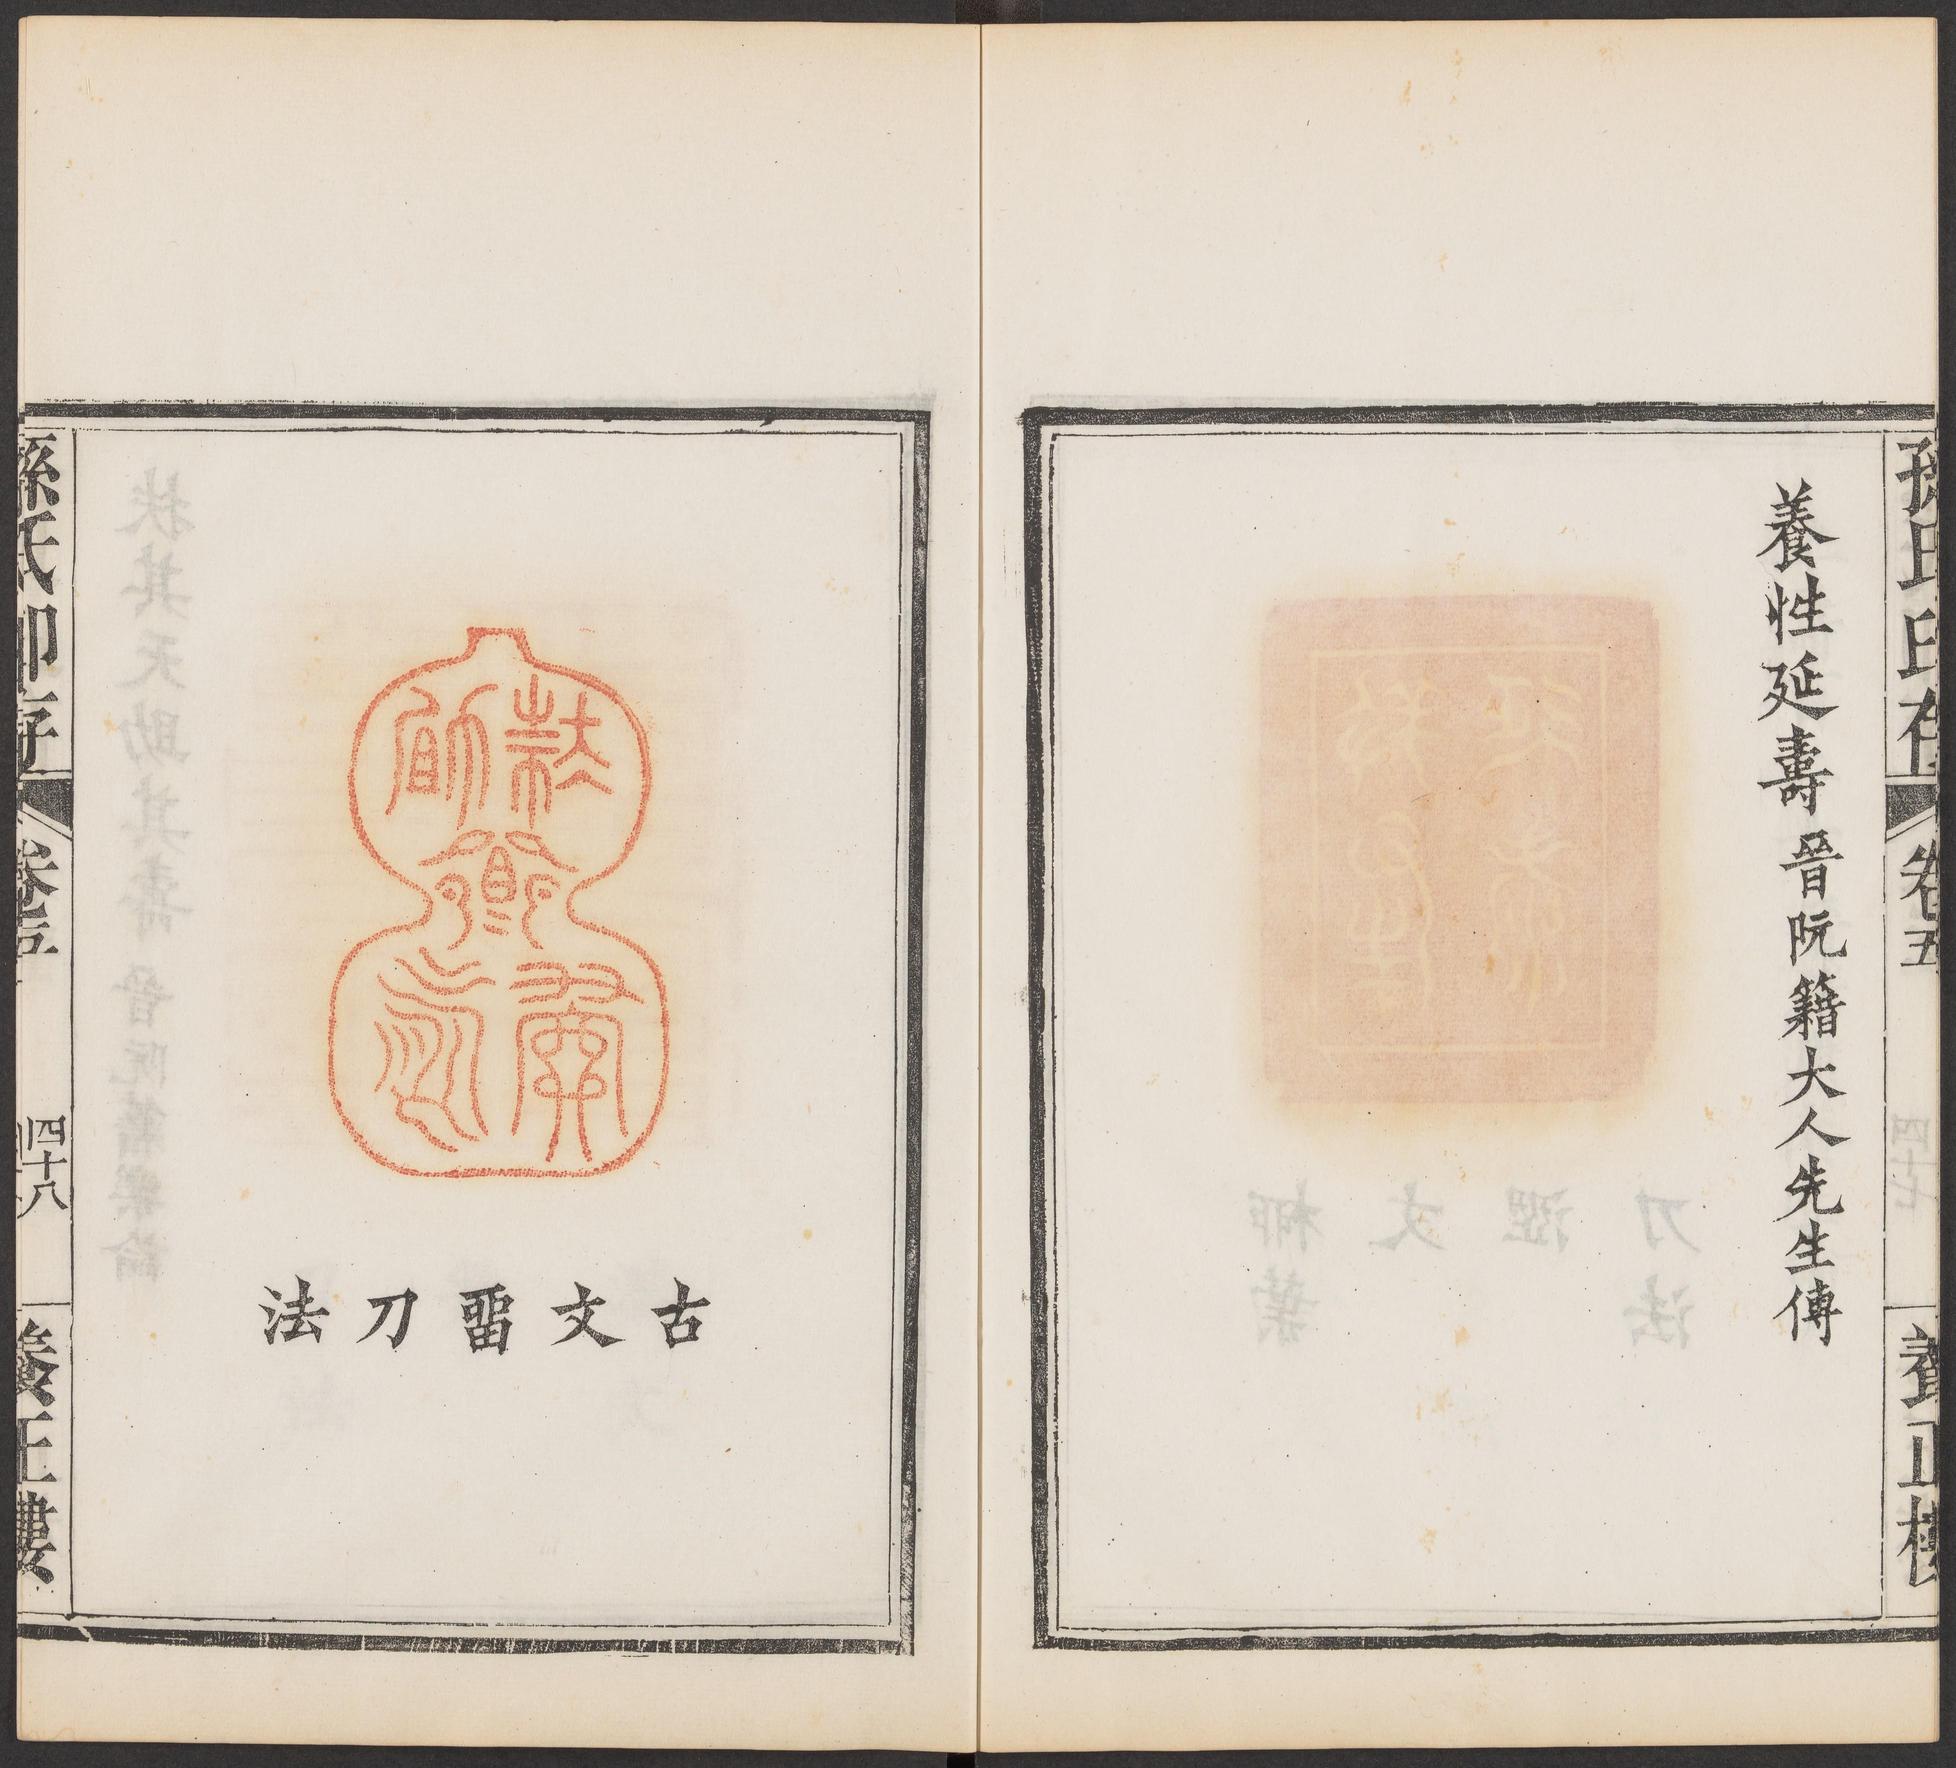 孫氏印存
卷五
養正樓
養性延壽 晉阮籍大人先生傳
古文畱刀法
孫氏印存
卷五
四十八
養正樓